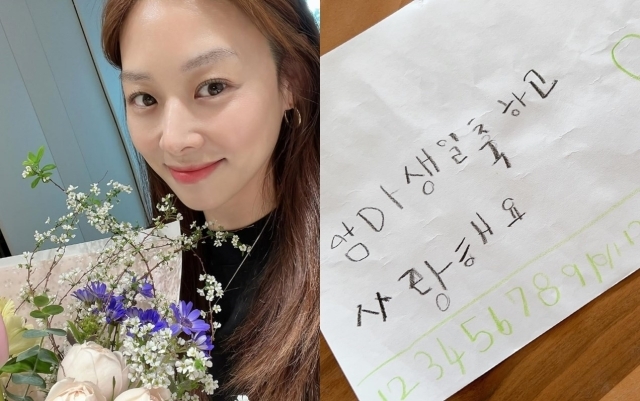 엄마생일축하고
사랑해요
1 2 3 4 5 6 7 8 9 10 11 12